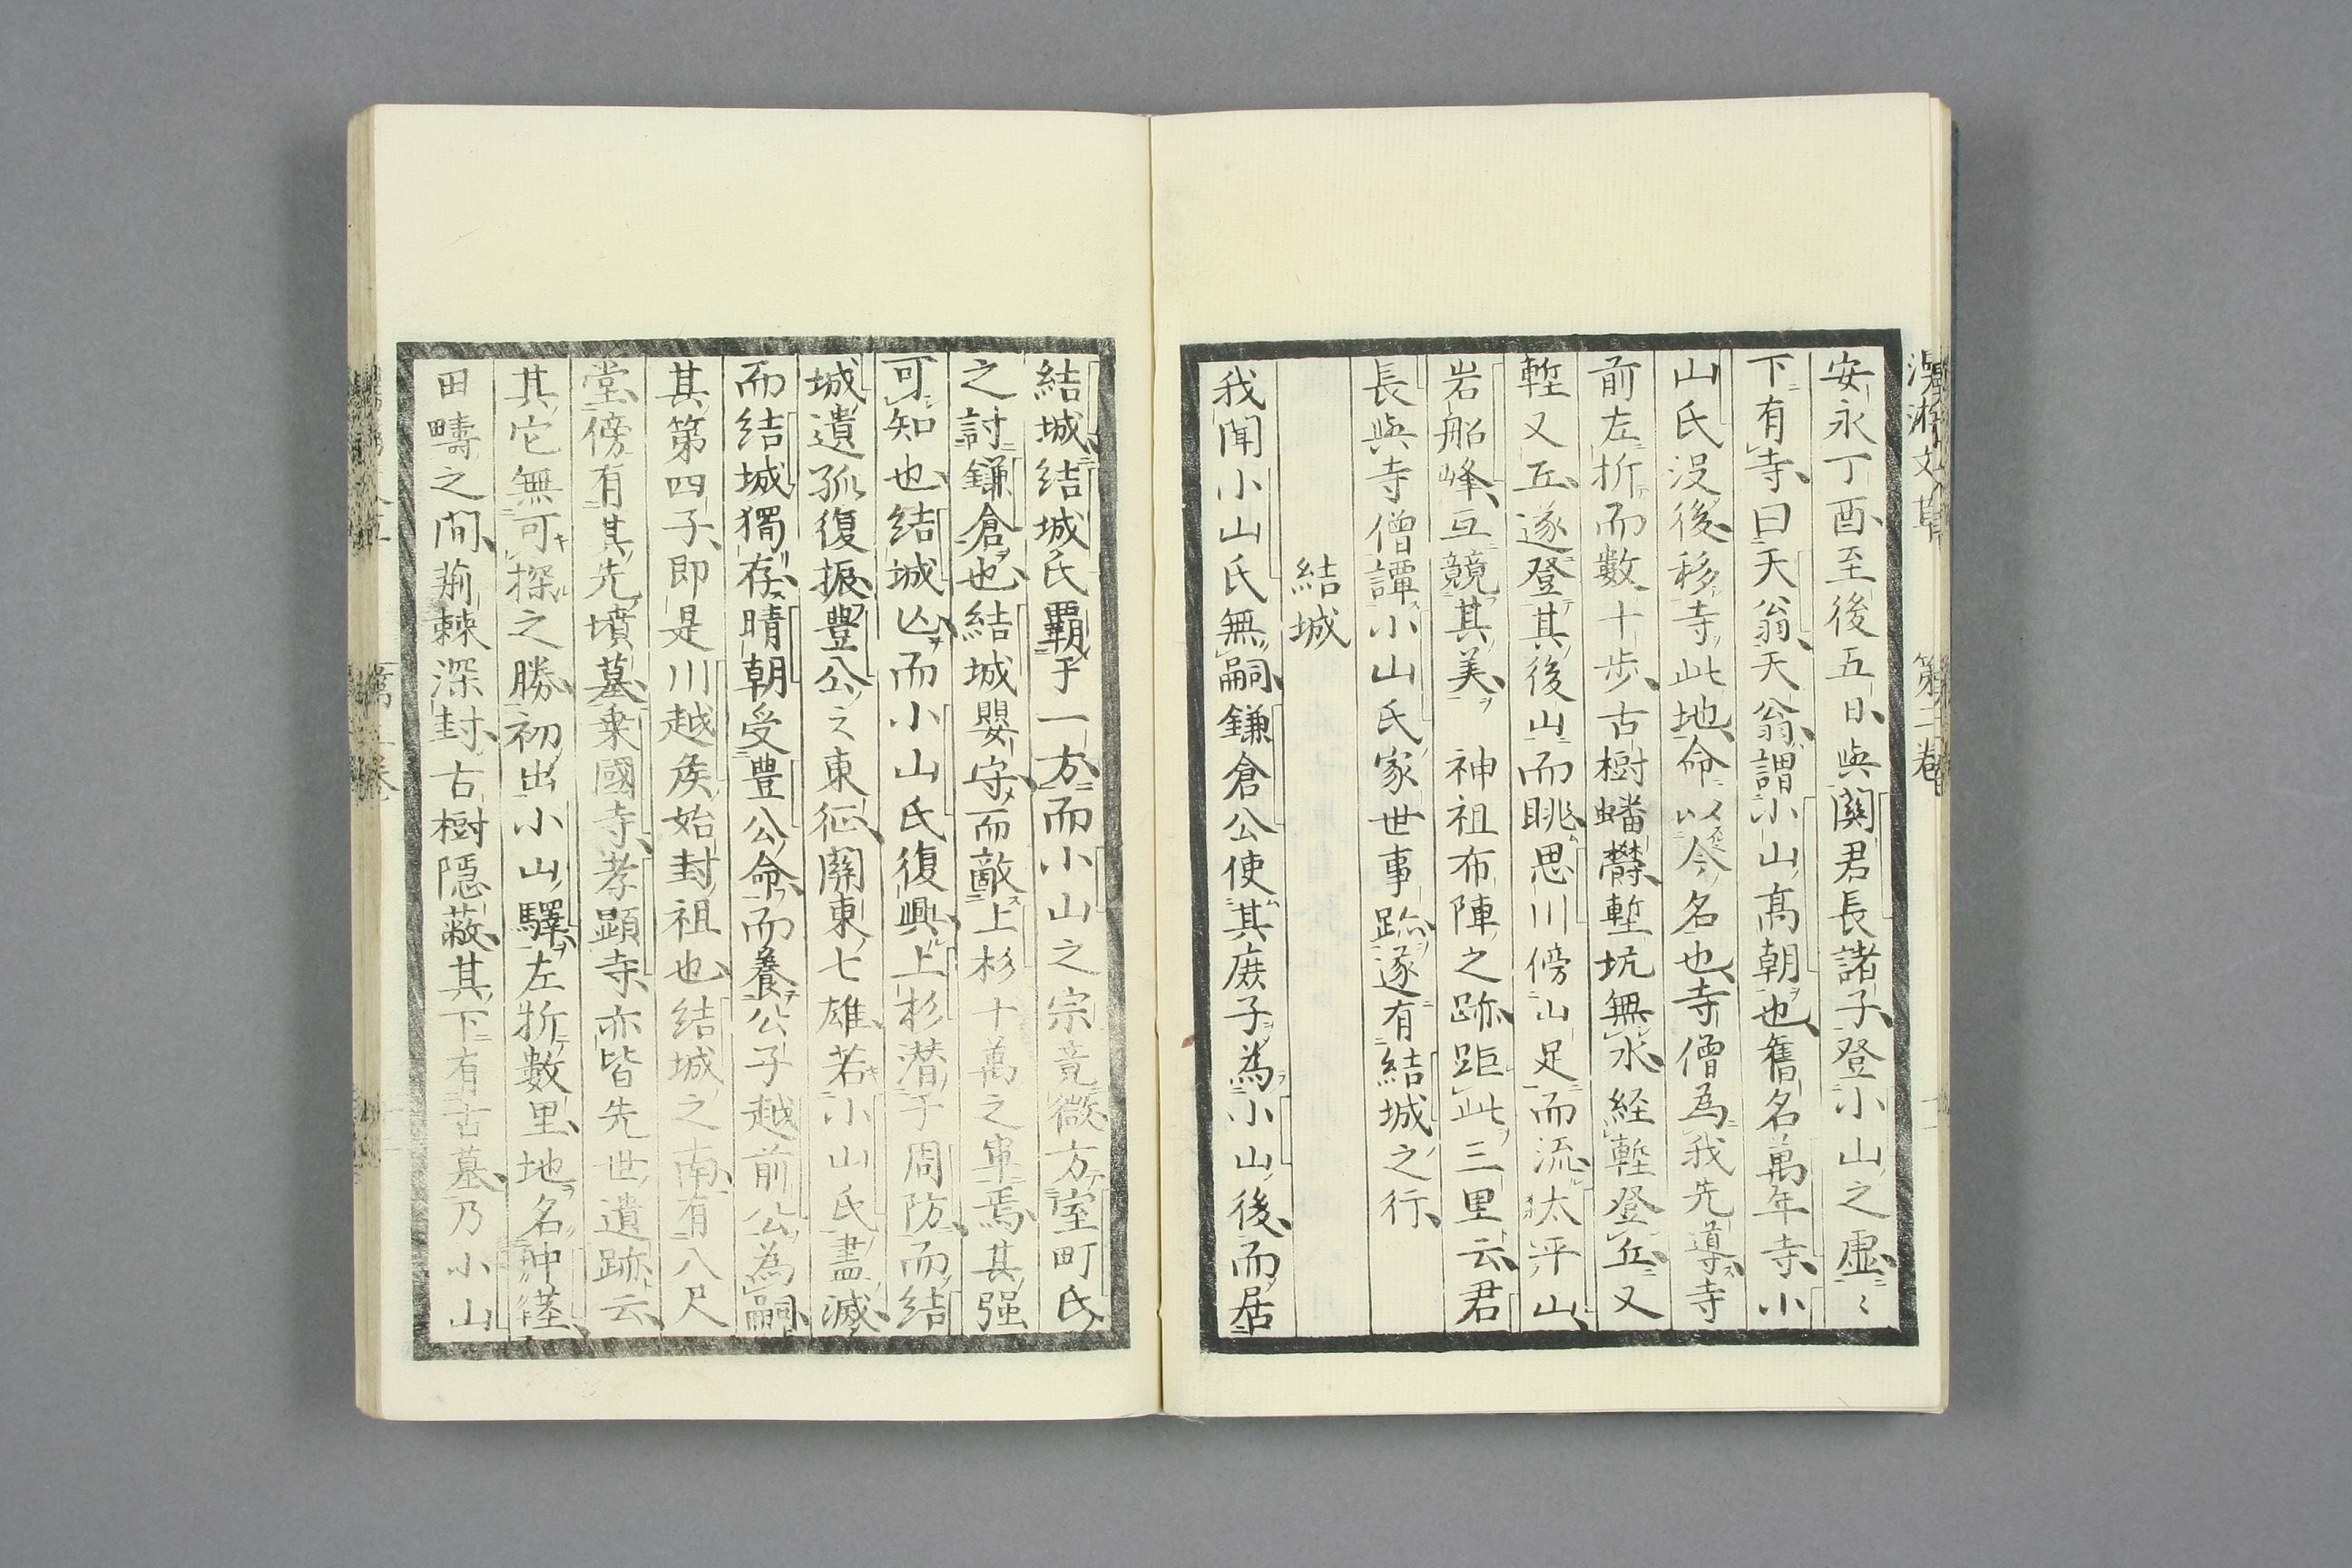 安永丁酉至後五日與關君長諸子登小山之虛〻
下有寺曰天翁天翁謂小山高朝也舊名萬年寺小
山氏没後移寺此地命以今名也寺僧為我先導寺
前左折而數十歩古樹蟠欝塹坑無水経塹登丘又
塹又丘遂登其後山而眺思川傍山足而流太平山
岩船峰互競其美　神祖布陣之跡距此三里云君
長與寺僧譚小山氏家世事跡遂有結城之行
結城
我聞小山氏無嗣鎌倉公使其庶子為小山後而居
結城結城氏覇于一方而小山之宗竟微方室町氏
之討鎌倉也結城嬰守而敵上杉十萬之軍焉其强
可知也結城亡而小山氏復興上杉潜于周防而結
城遺孤復振豐公之東征關東七雄若小山氏盡滅
而結城獨存晴朝受豊公命而養公子越前公為嗣
其第四子即是川越矦始封祖也結城之南有八尺
堂傍有其先墳墓乗國寺孝顕寺亦皆先世遺跡云
其它無可探之勝初出小山驛左折數里地名
田疇之間荊棘深封古樹隠蔽其下有古墓乃小山
文草　第二巻